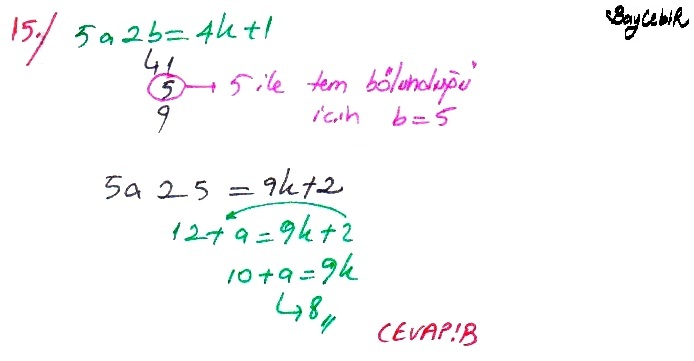 BayCebir
15./ 5a2b = 4k+1
41
5 → 5 ile tam bölündüğü
9 için b=5
5a25 = 9k+2
12+a = 9k+2
10+a = 9k
↳ 8,,
CEVAP:B